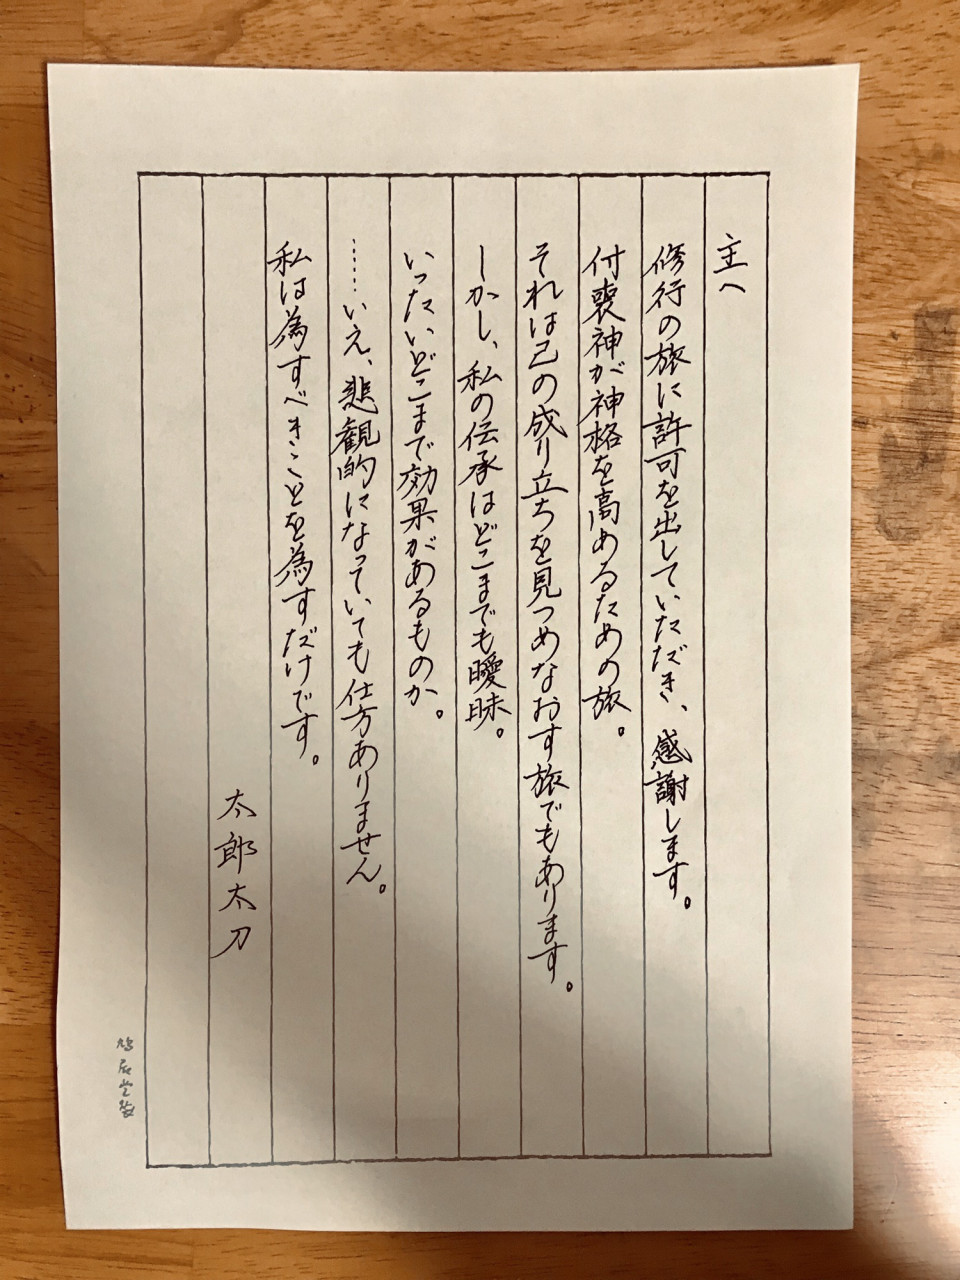 主へ
修行の旅に許可を出していただき、感謝します。
付喪神が神格を高めるための旅。
それは己の成り立ちを見つめなおす旅でもあります。
しかし、私の伝承はどこまでも曖昧。
いったいどこまで効果があるものか。
……いえ、悲観的になっていても仕方ありません。
私は為すべきことを為すだけです。
太郎太刀
鳩居堂製